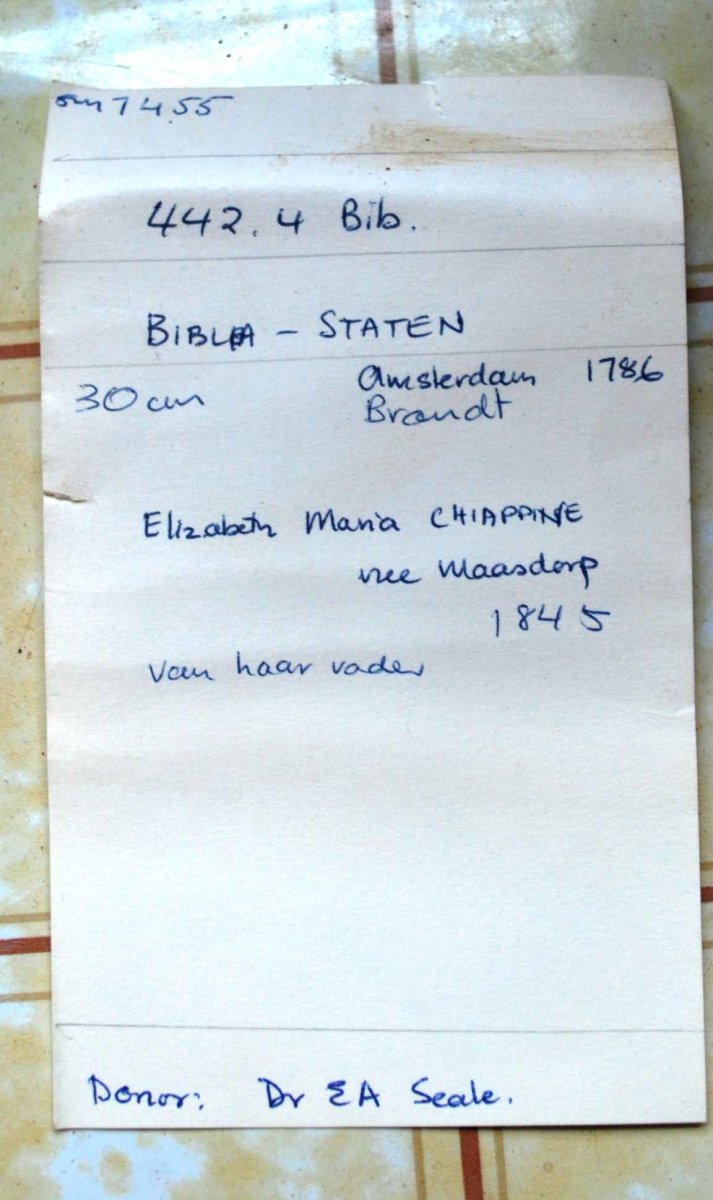 om 7455
442.4 Bib.
BIBLIA - STATEN
30 cm Amsterdam 1786
Brandt
Elizabeth Maria CHIAPPINIE
nee Maasdorp
1845
Van haar vader
Donor: Dr EA Seale.